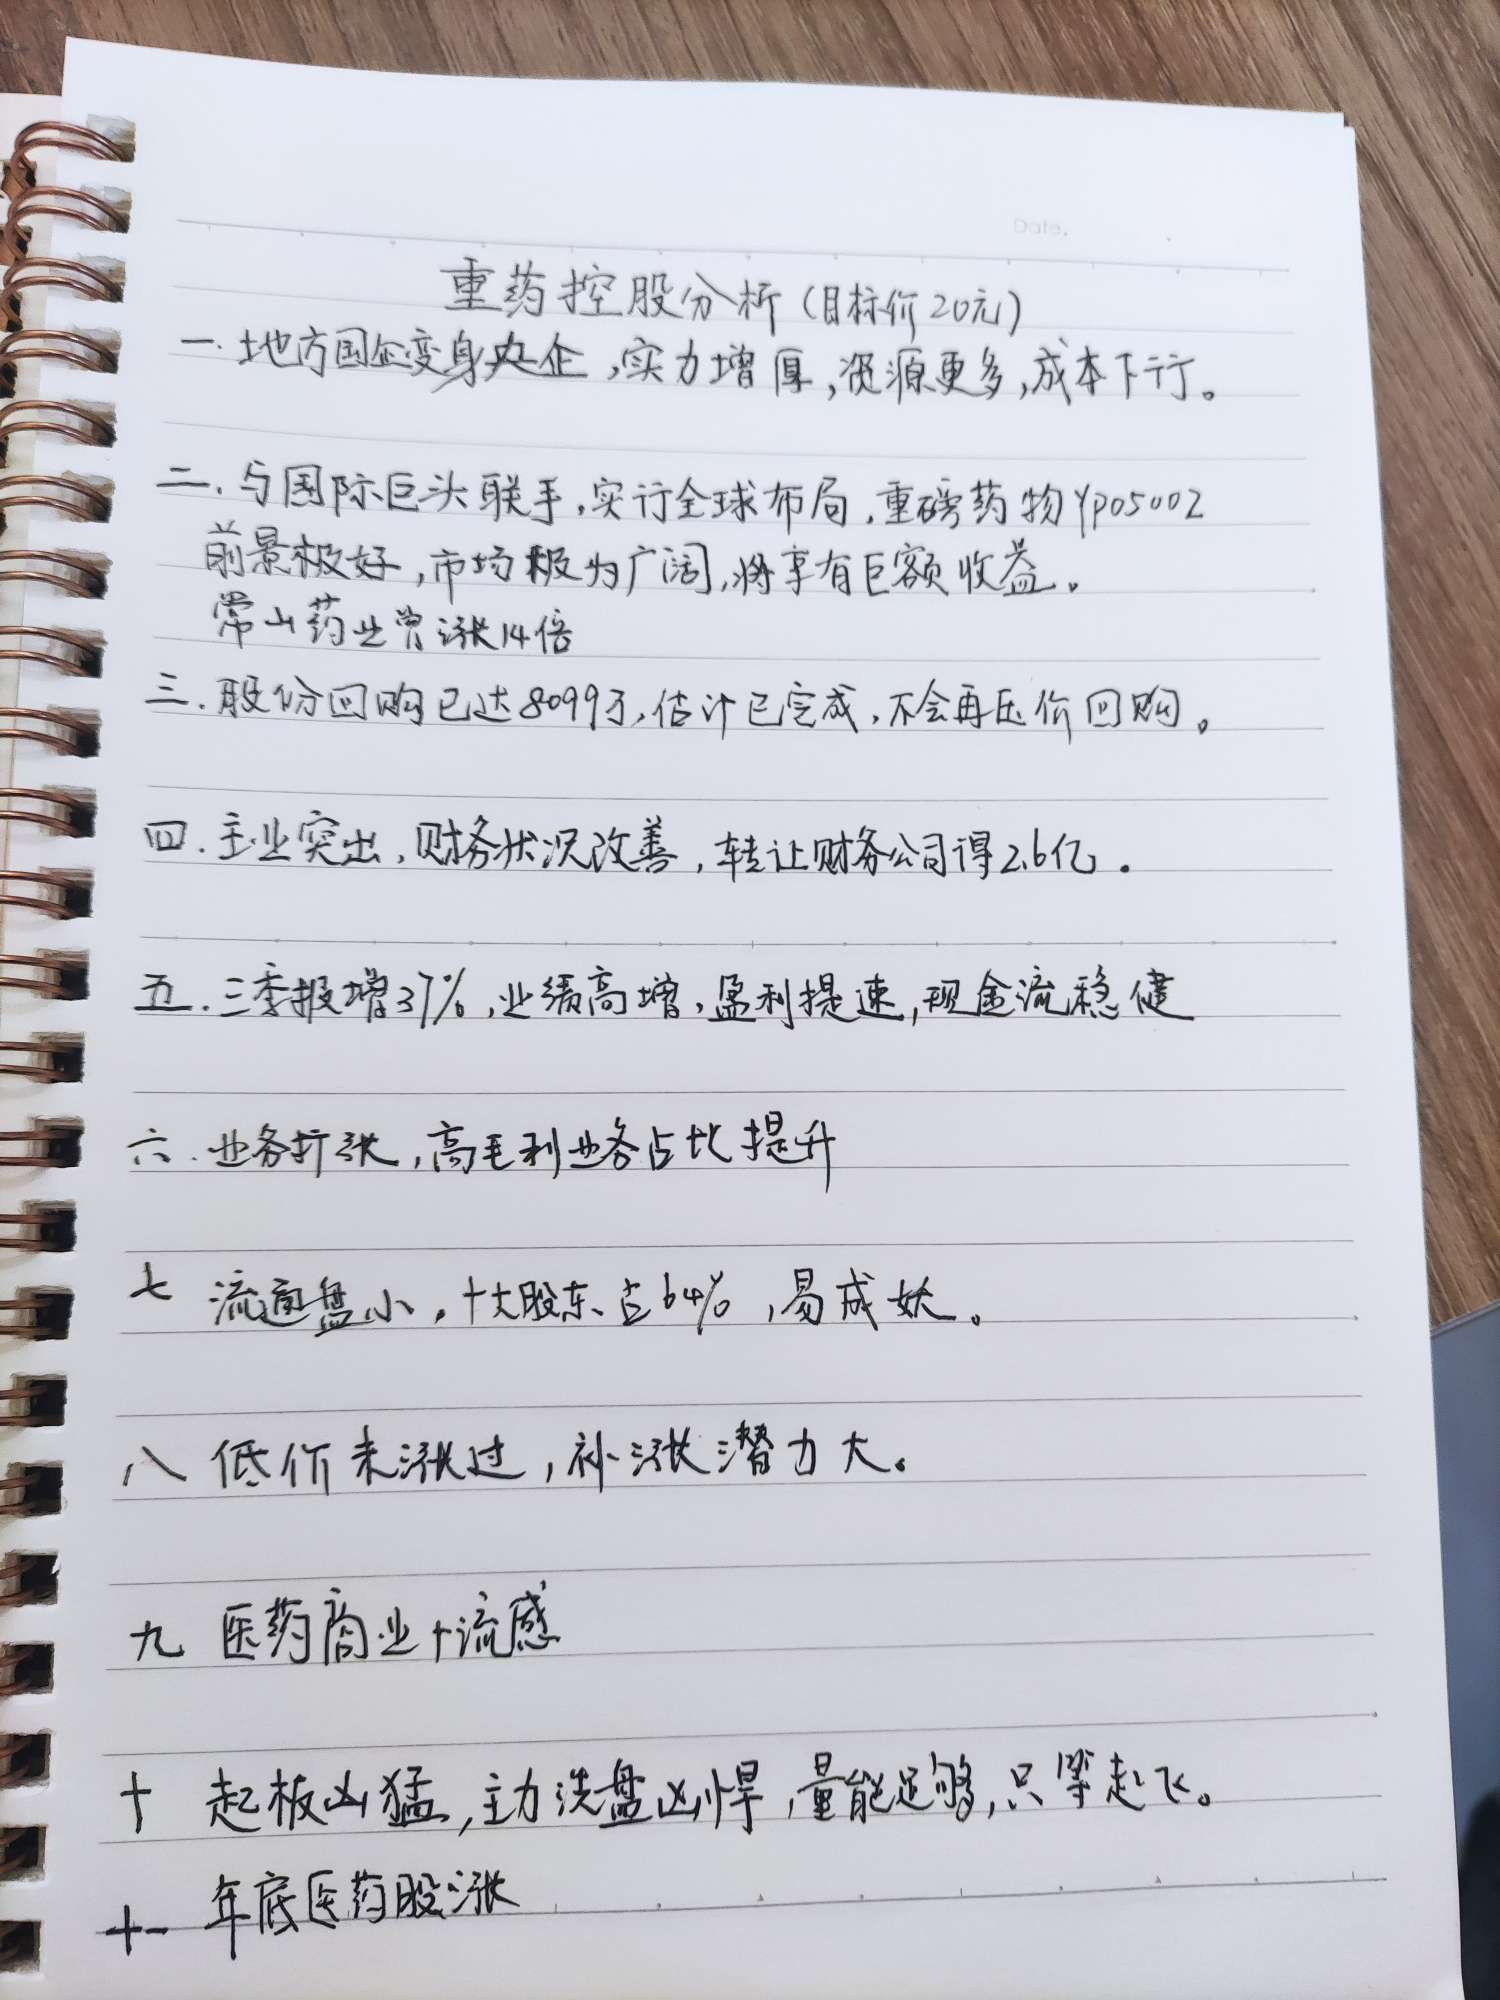 Date.
重药控股分析(目标价20元)
一.地方国企变身央企,实力增厚,资源更多,成本下行。
二.与国际巨头联手,实行全球布局.重磅药物YP05002
前景极好,市场极为广阔,将享有巨额收益。
常山药业曾涨14倍
三.股份回购已达8099万,估计已完成,不会再压价回购。
四.主业突出,财务状况改善,转让财务公司得2.6亿.
五.三季报增37%,业绩高增,盈利提速,现金流稳健
六.业务扩张,高毛利业务占比提升
七 流通盘小.十大股东占64%,易成妖。
八 低价未涨过,补涨潜力大。
九 医药商业+流感
十 起板凶猛,主力洗盘凶悍,量能足够,只等起飞。
十一 年底医药股涨